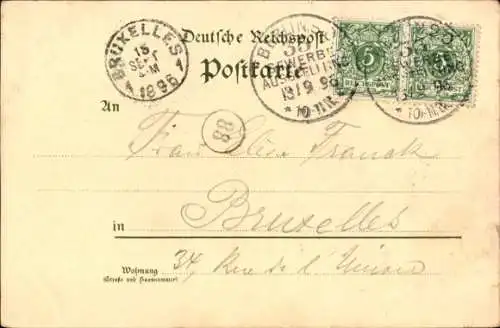 Deutsche Reichspost
Postkarte
BRUXELLES 1
15
SEPT
1896
GEWERBE
AUSSTELLUNG
13/9 96
5
An
88
Frau Elise Franck
in
Bruxelles
Wohnung
(Straße und Hausnummer)
34, Rue de l'Union